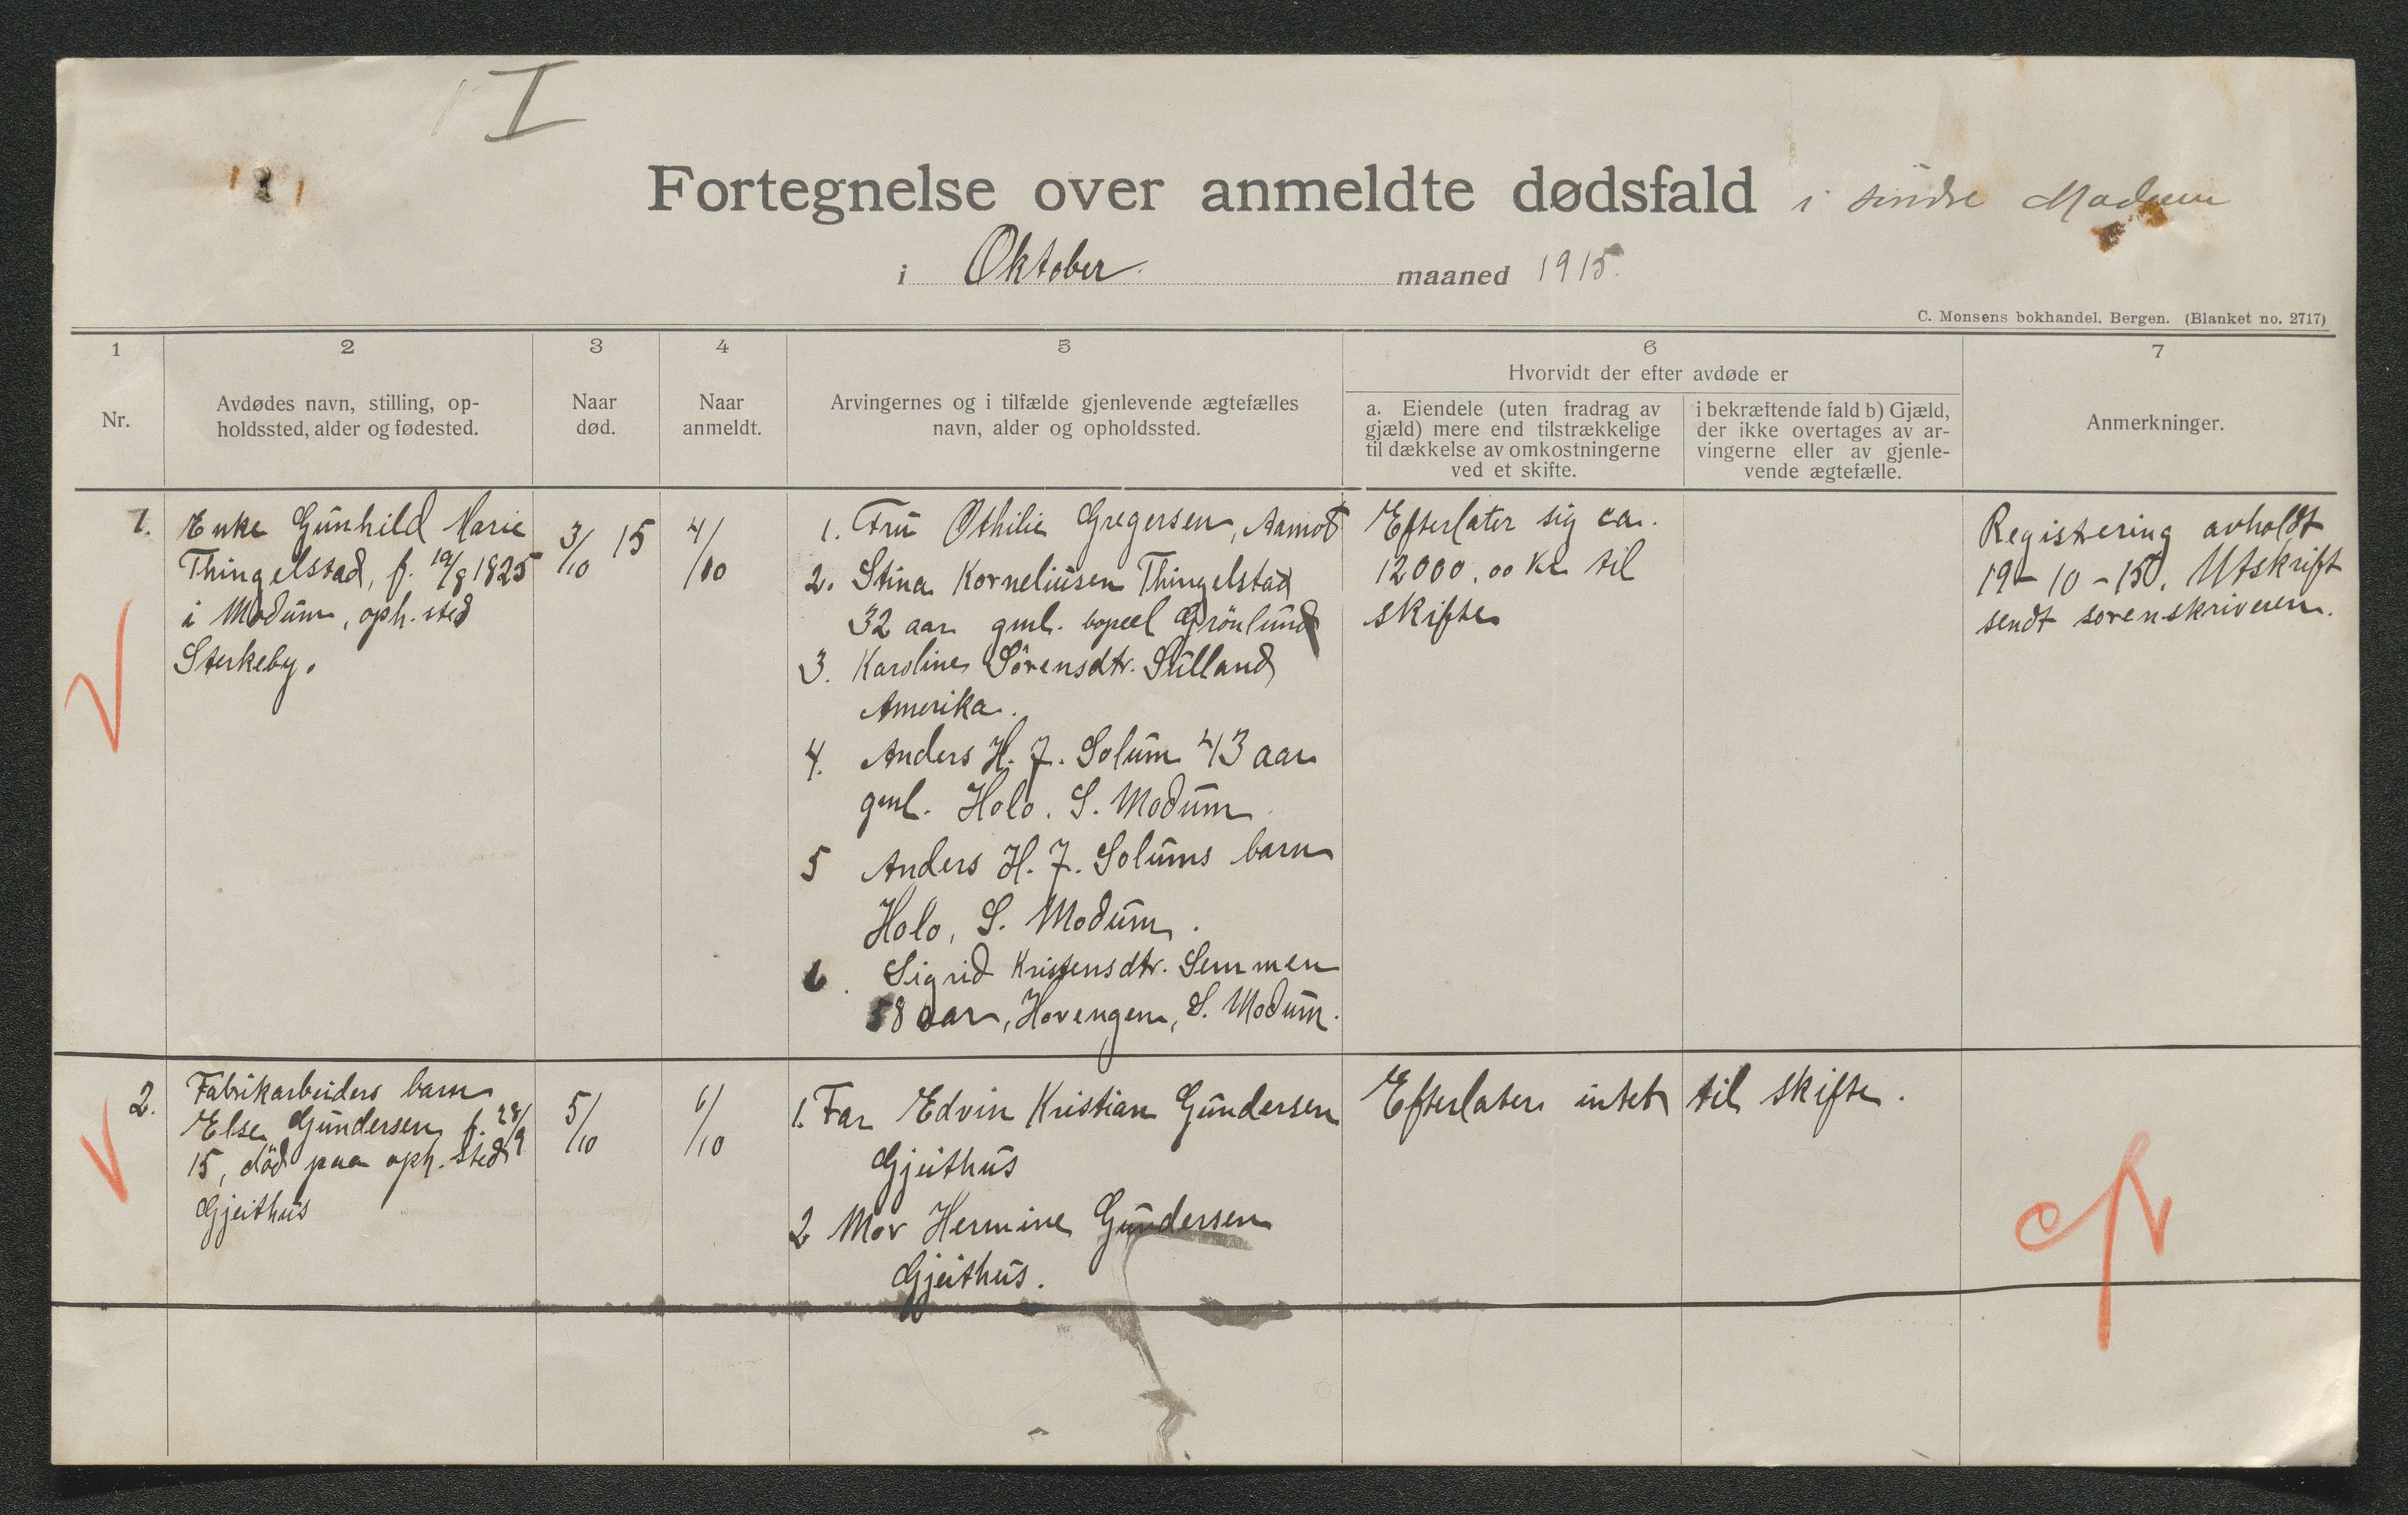 I
Fortegnelse over anmeldte dødsfald i søndre Modum
i Oktober maaned 1915.
C. Monsens bokhandel, Bergen. (Blanket no. 2717)
1
Nr.
2
Avdødes navn, stilling, op-
holdssted, alder og fødested.
3
Naar
død.
4
Naar
anmeldt.
5
Arvingernes og i tilfælde gjenlevende ægtefælles
navn, alder og opholdssted.
6
Hvorvidt der efter avdøde er
a. Eiendele (uten fradrag av
gjæld) mere end tilstrækkelige
til dækkelse av omkostningerne
ved et skifte.
i bekræftende fald b) Gjæld,
der ikke overtages av ar-
vingerne eller av gjenle-
vende ægtefælle.
7
Anmerkninger.
1.
Enke Gunhild Marie
Thingelstad, f. 1825
i Modum, oph. sted
Sterkeby.
3/10 15
4/10
1. Fru Othilie Gregersen, Aamot
2. Stina Korneliusen Thingelstad
32 aar gml. bopæl Grönlund
3. Karoline Sörensdtr. Sülland
Amerika.
4. Anders H. J. Solum 43 aar
gml. Holo. S. Modum
5 Anders H. J. Solums barn
Holo, S. Modum.
6. Sigrid Kristensdtr. Semmen
58 aar, Hovengen, S. Modum.
Efterlater sig ca.
12000,00 Kr til
skifte
Registrering avholdt
19-10-15. Utskrift
sendt sorenskriveren.
2.
Fabrikarbeiders barn
Else Gundersen f. 28/9
15, död paa oph. sted
Gjeithus
5/10
6/10
1. Far Edvin Kristian Gundersen
Gjeithus
2 Mor Hermine Gundersen
Gjeithus.
Efterlater intet til skifte.